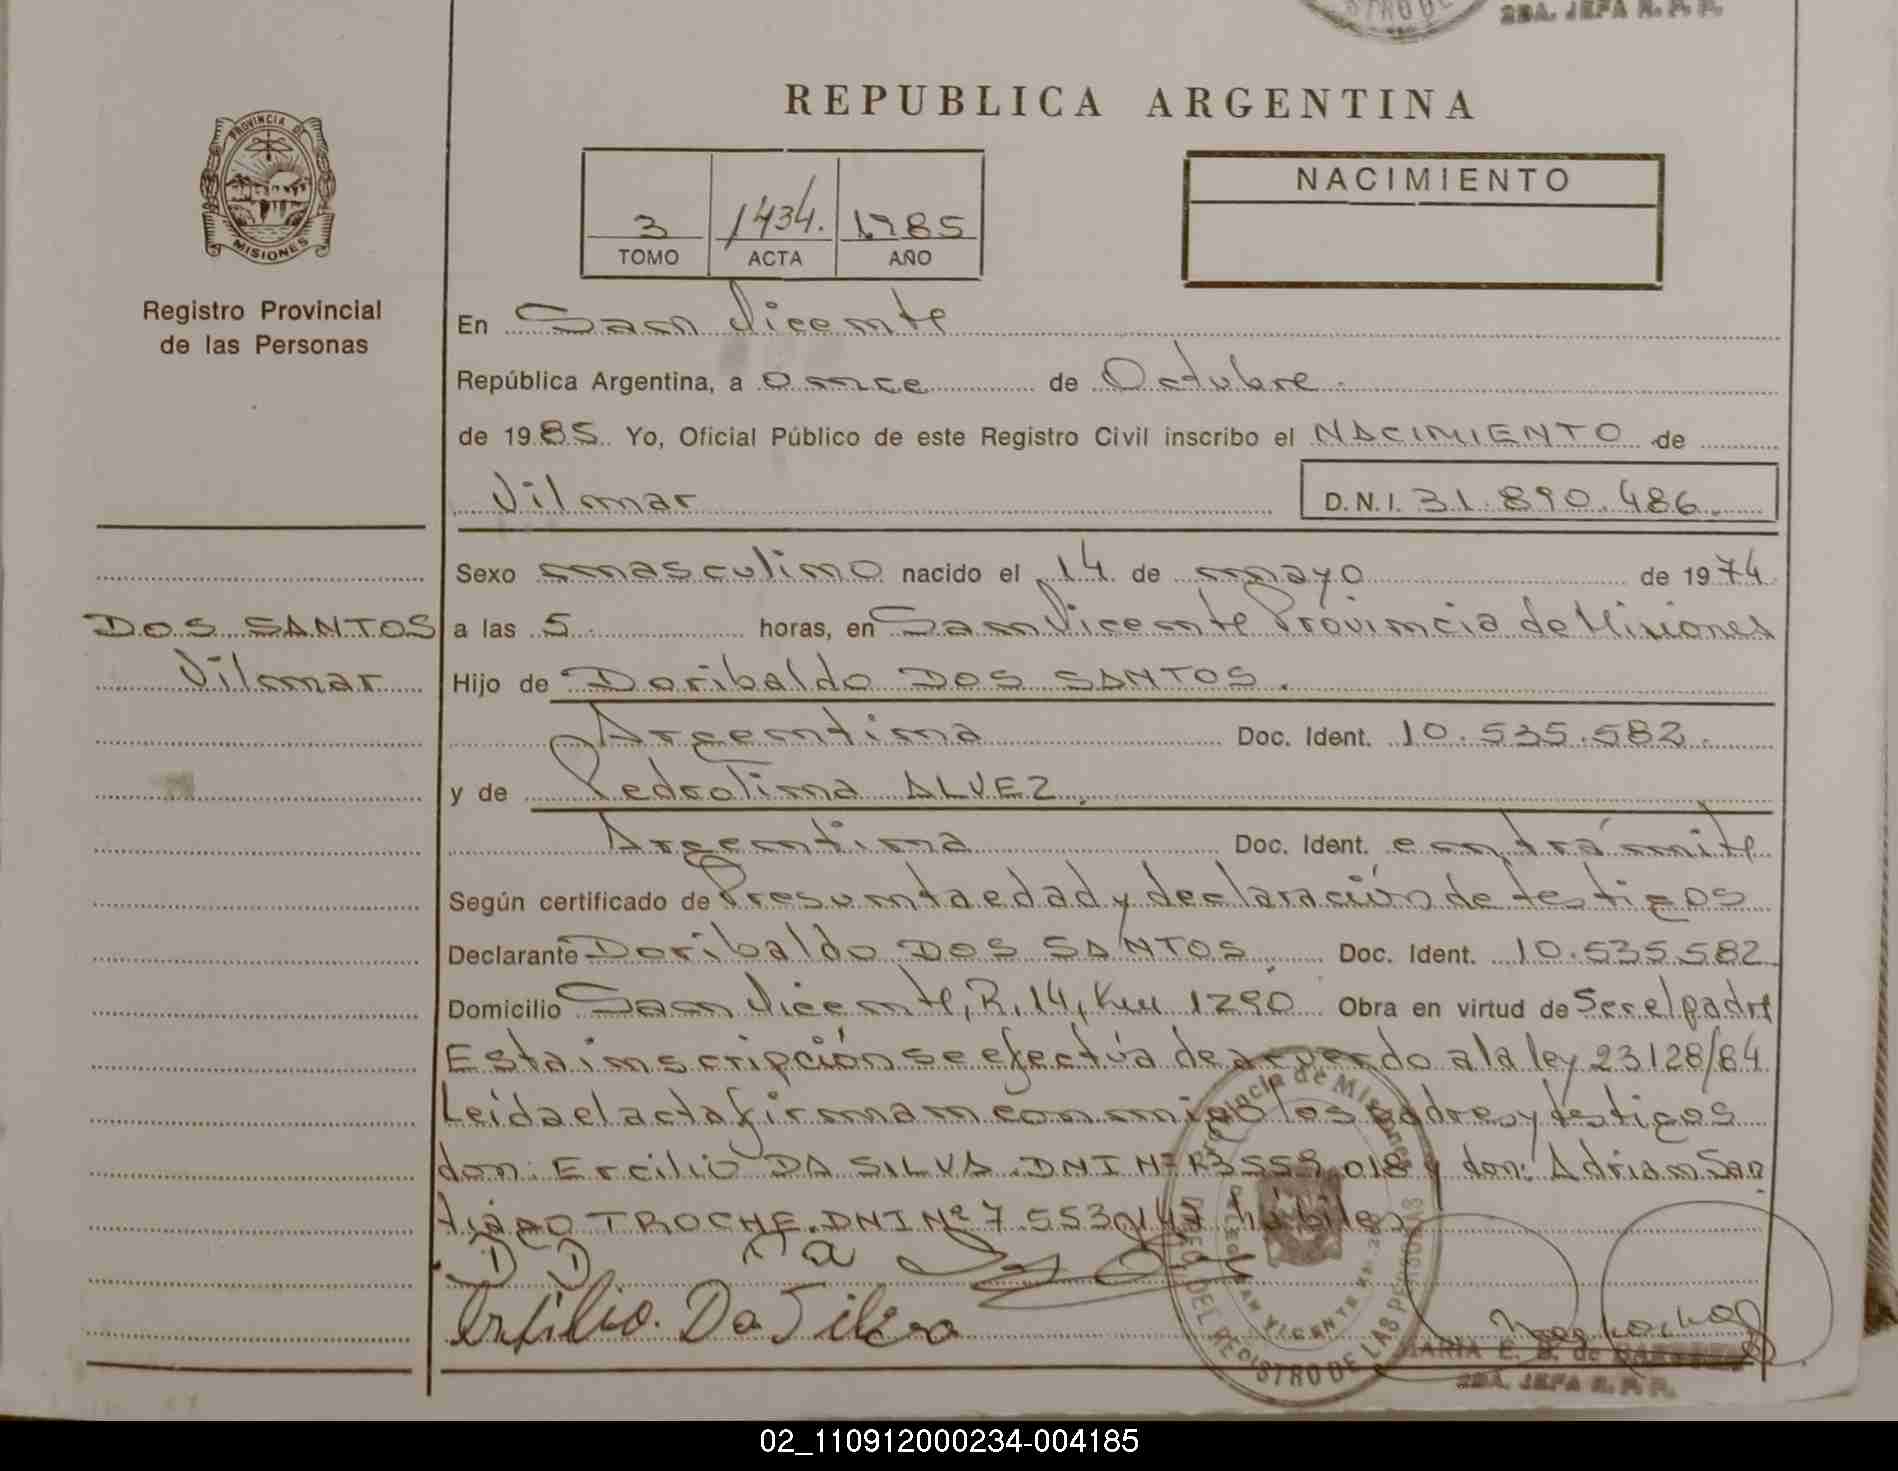 STRO DE
2DA. JEFA R. P. P.
REPUBLICA ARGENTINA
PROVINCIA DE
MISIONES
Registro Provincial
de las Personas
3 1434. 1985
TOMO ACTA AÑO
NACIMIENTO
En San Vicente
República Argentina, a once de Octubre.
de 1985. Yo, Oficial Público de este Registro Civil inscribo el NACIMIENTO de
Vilmar D.N.I. 31.890.486.
Sexo masculino nacido el 14 de mayo de 1974
DOS SANTOS
Vilmar
a las 5. horas, en San Vicente Provincia de Misiones
Hijo de Doribaldo DOS SANTOS.
Argentina Doc. Ident. 10.535.582.
y de Pedrolina ALVEZ.
Argentina Doc. Ident. en trámite
Según certificado de Presunta edad y declaración de testigos
Declarante Doribaldo DOS SANTOS. Doc. Ident. 10.535.582
Domicilio San Vicente, R. 14, Km 1290 Obra en virtud de Ser el padre
Esta inscripción se efectúa de acuerdo a la ley 23128/84
Leída el acta firman conmigo los padres y testigos
don: Ercilio DA SILVA. DNI Nº 3559.018 y don: Adrian San
tiago TROCHE. DNI Nº 7.553.147 hábiles
D D
Ersilio. Da Silva
Provincia de Misiones
SAN VICENTE
DEL REGISTRO DE LAS PERSONAS
MARIA E. B. de
2DA. JEFA R. P. P.
02_110912000234-004185